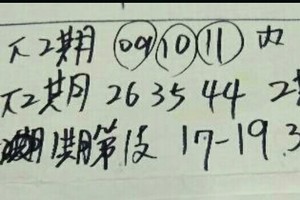 下2期 09 10 11 内
下2期 26 35 44 2
1期第 17-19.3